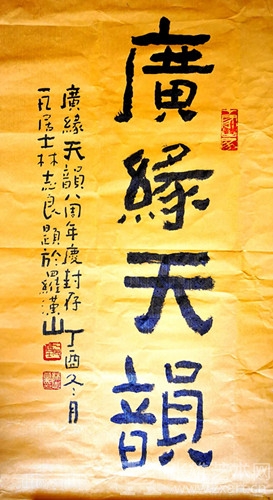 廣緣天韻
廣緣天韻八周年慶封存丁酉冬月
居士林志良題於羅漢山